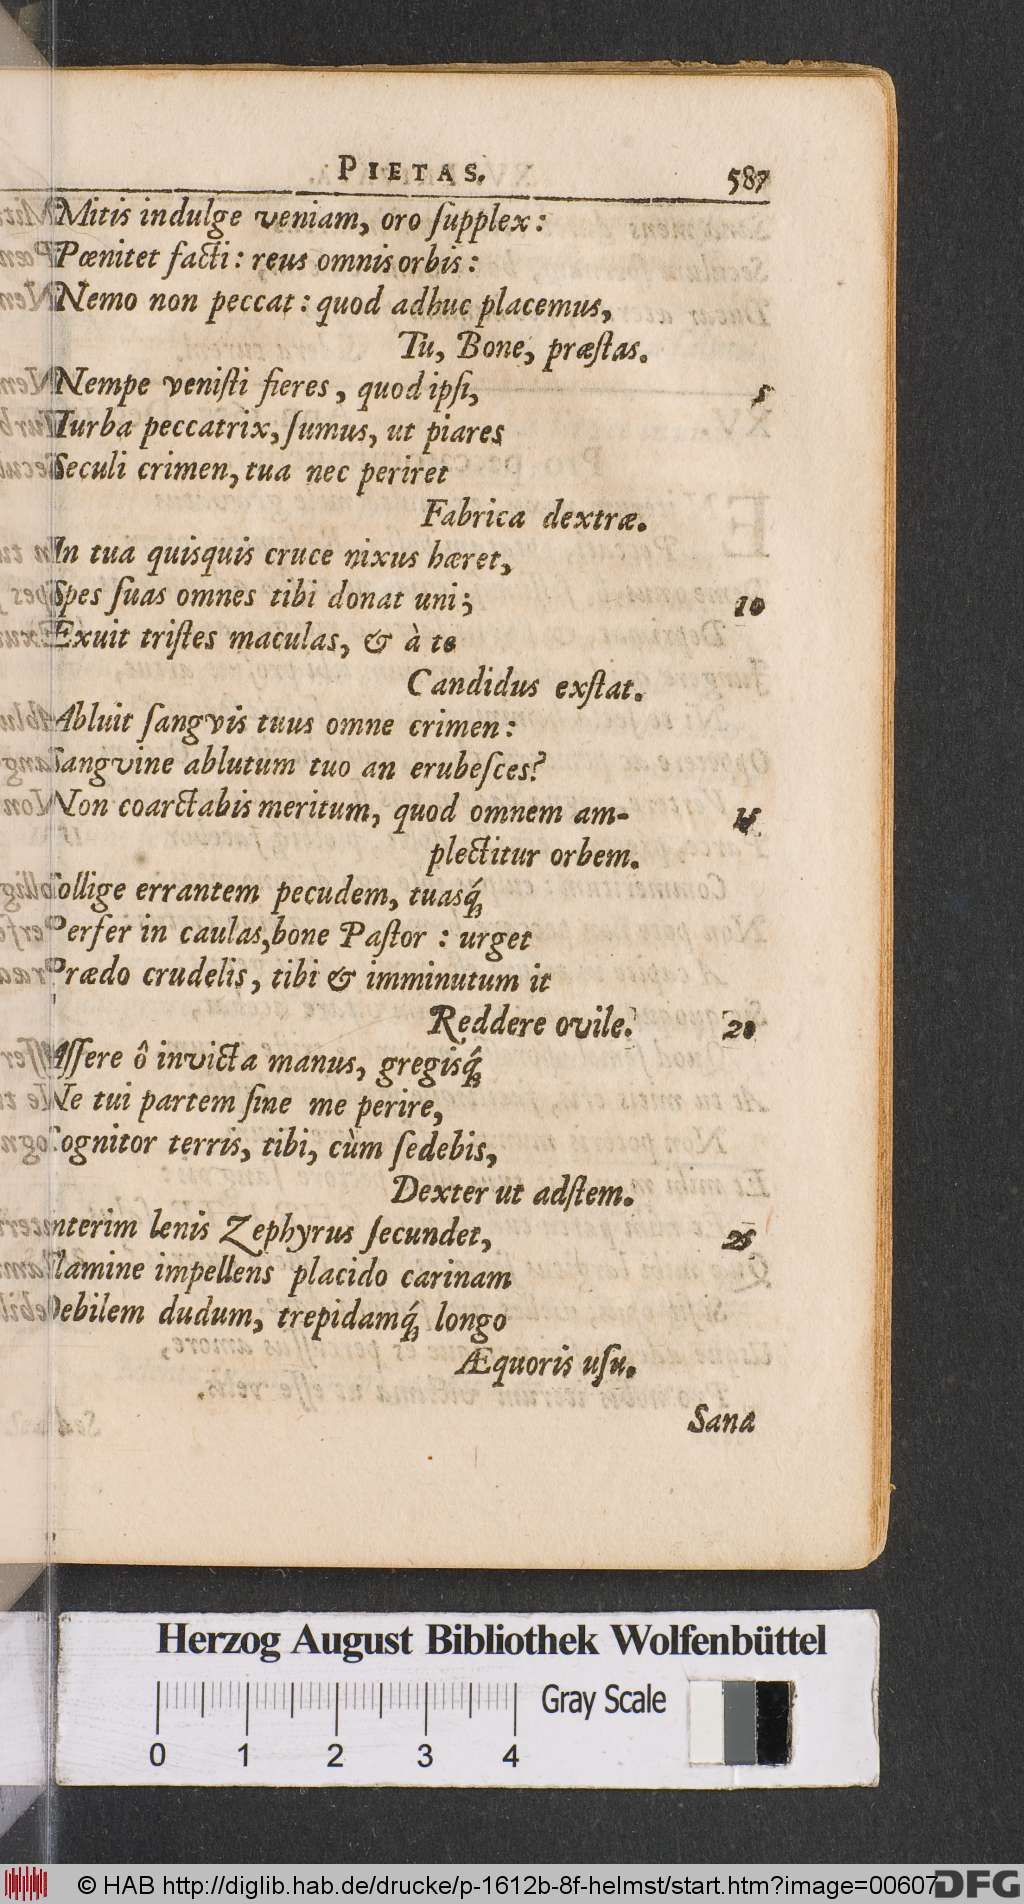 PIETAS. 587
Mitis indulge veniam, oro ſupplex:
Pœnitet facti: reus omnis orbis:
Nemo non peccat: quod adhuc placemus,
Tu, Bone, præſtas.
Nempe veniſti fieres, quod ipſi, 5
Turba peccatrix, ſumus, ut piares
Seculi crimen, tua nec periret
Fabrica dextræ.
In tua quisquis cruce nixus hæret,
Spes ſuas omnes tibi donat uni; 10
Exuit triſtes maculas, & à te
Candidus exſtat.
Abluit ſangvis tuus omne crimen:
Sangvine ablutum tuo an erubeſces?
Non coarctabis meritum, quod omnem am- 15
plectitur orbem.
Collige errantem pecudem, tuasq́;
Perfer in caulas, bone Paſtor: urget
Prædo crudelis, tibi & imminutum it
Reddere ovile. 20
Aſſere ô invicta manus, gregisq́;
Ne tui partem ſine me perire,
Cognitor terris, tibi, cùm ſedebis,
Dexter ut adſtem.
Interim lenis Zephyrus ſecundet, 25
Flamine impellens placido carinam
Debilem dudum, trepidamq́; longo
Æquoris uſu.
Sana
Herzog August Bibliothek Wolfenbüttel
Gray Scale
0 1 2 3 4
© HAB http://diglib.hab.de/drucke/p-1612b-8f-helmst/start.htm?image=00607
DFG